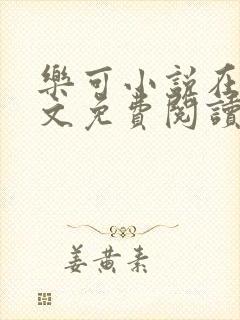 樂可小說在
文免費閱讀
姜黃素